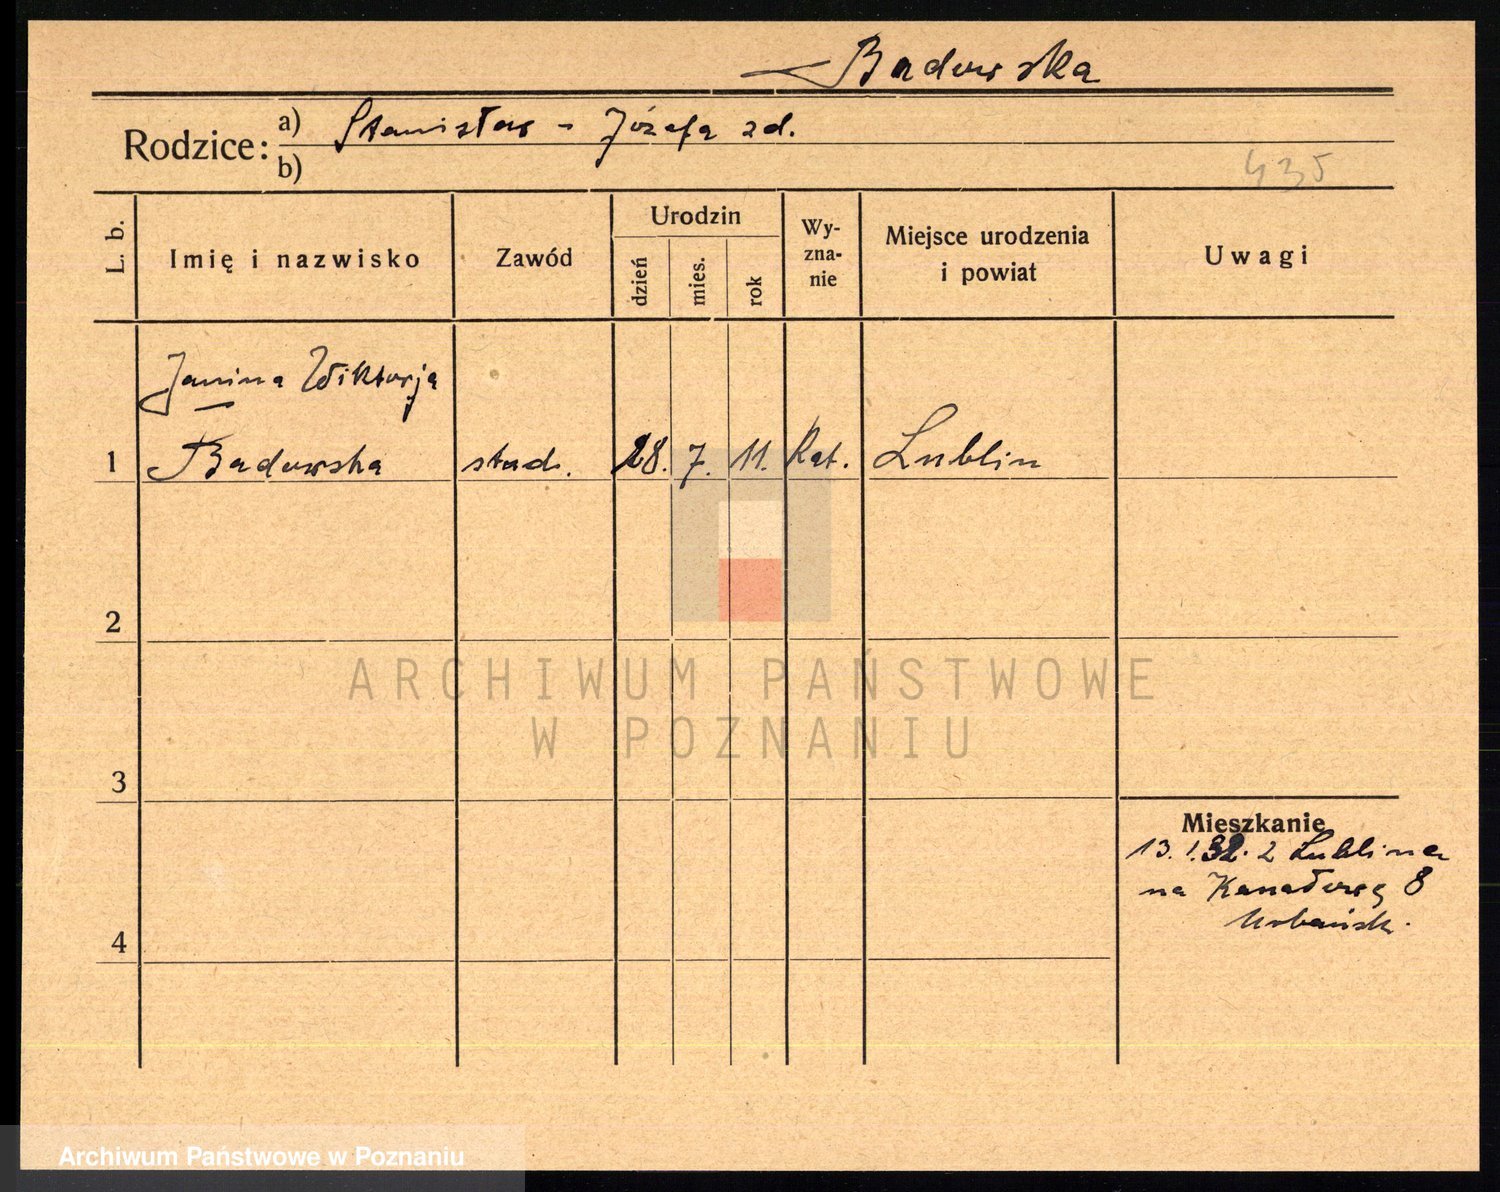 Badowska
Rodzice: a) Stanisław - Józefa zd.
b)
435
L. b.
Imię i nazwisko
Zawód
Urodzin
dzień
mies.
rok
Wy-
zna-
nie
Miejsce urodzenia
i powiat
Uwagi
Janina Wiktorja
1 Badowska stud. 28. 7. 11. Kat. Lublin
2
3
4
Mieszkanie
13.1.32. z Lublina
na Kanałową 8
ARCHIWUM PAŃSTWOWE
W POZNANIU
Archiwum Państwowe w Poznaniu